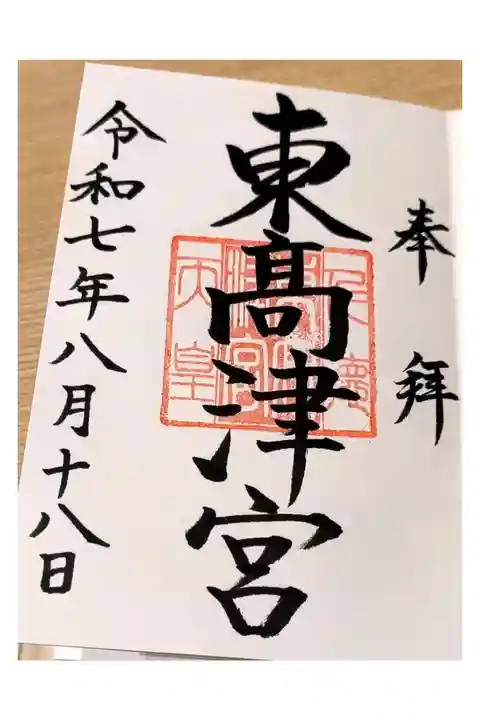 奉拜
東髙津宮
令和七年八月十八日